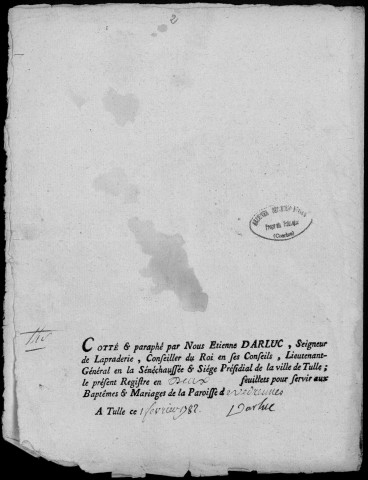 2
COTTÉ & paraphé par Nous Etienne DARLUC, Seigneur
de Lapraderie, Conseiller du Roi en ses Conseils, Lieutenant-
Général en la Sénéchaussée & Siége Présidial de la ville de Tulle;
le présent Registre en feuillets pour servir aux
Baptêmes & Mariages de la Paroisse d
A Tulle ce 1 fevrier 1782. Darluc
(Corrèze)